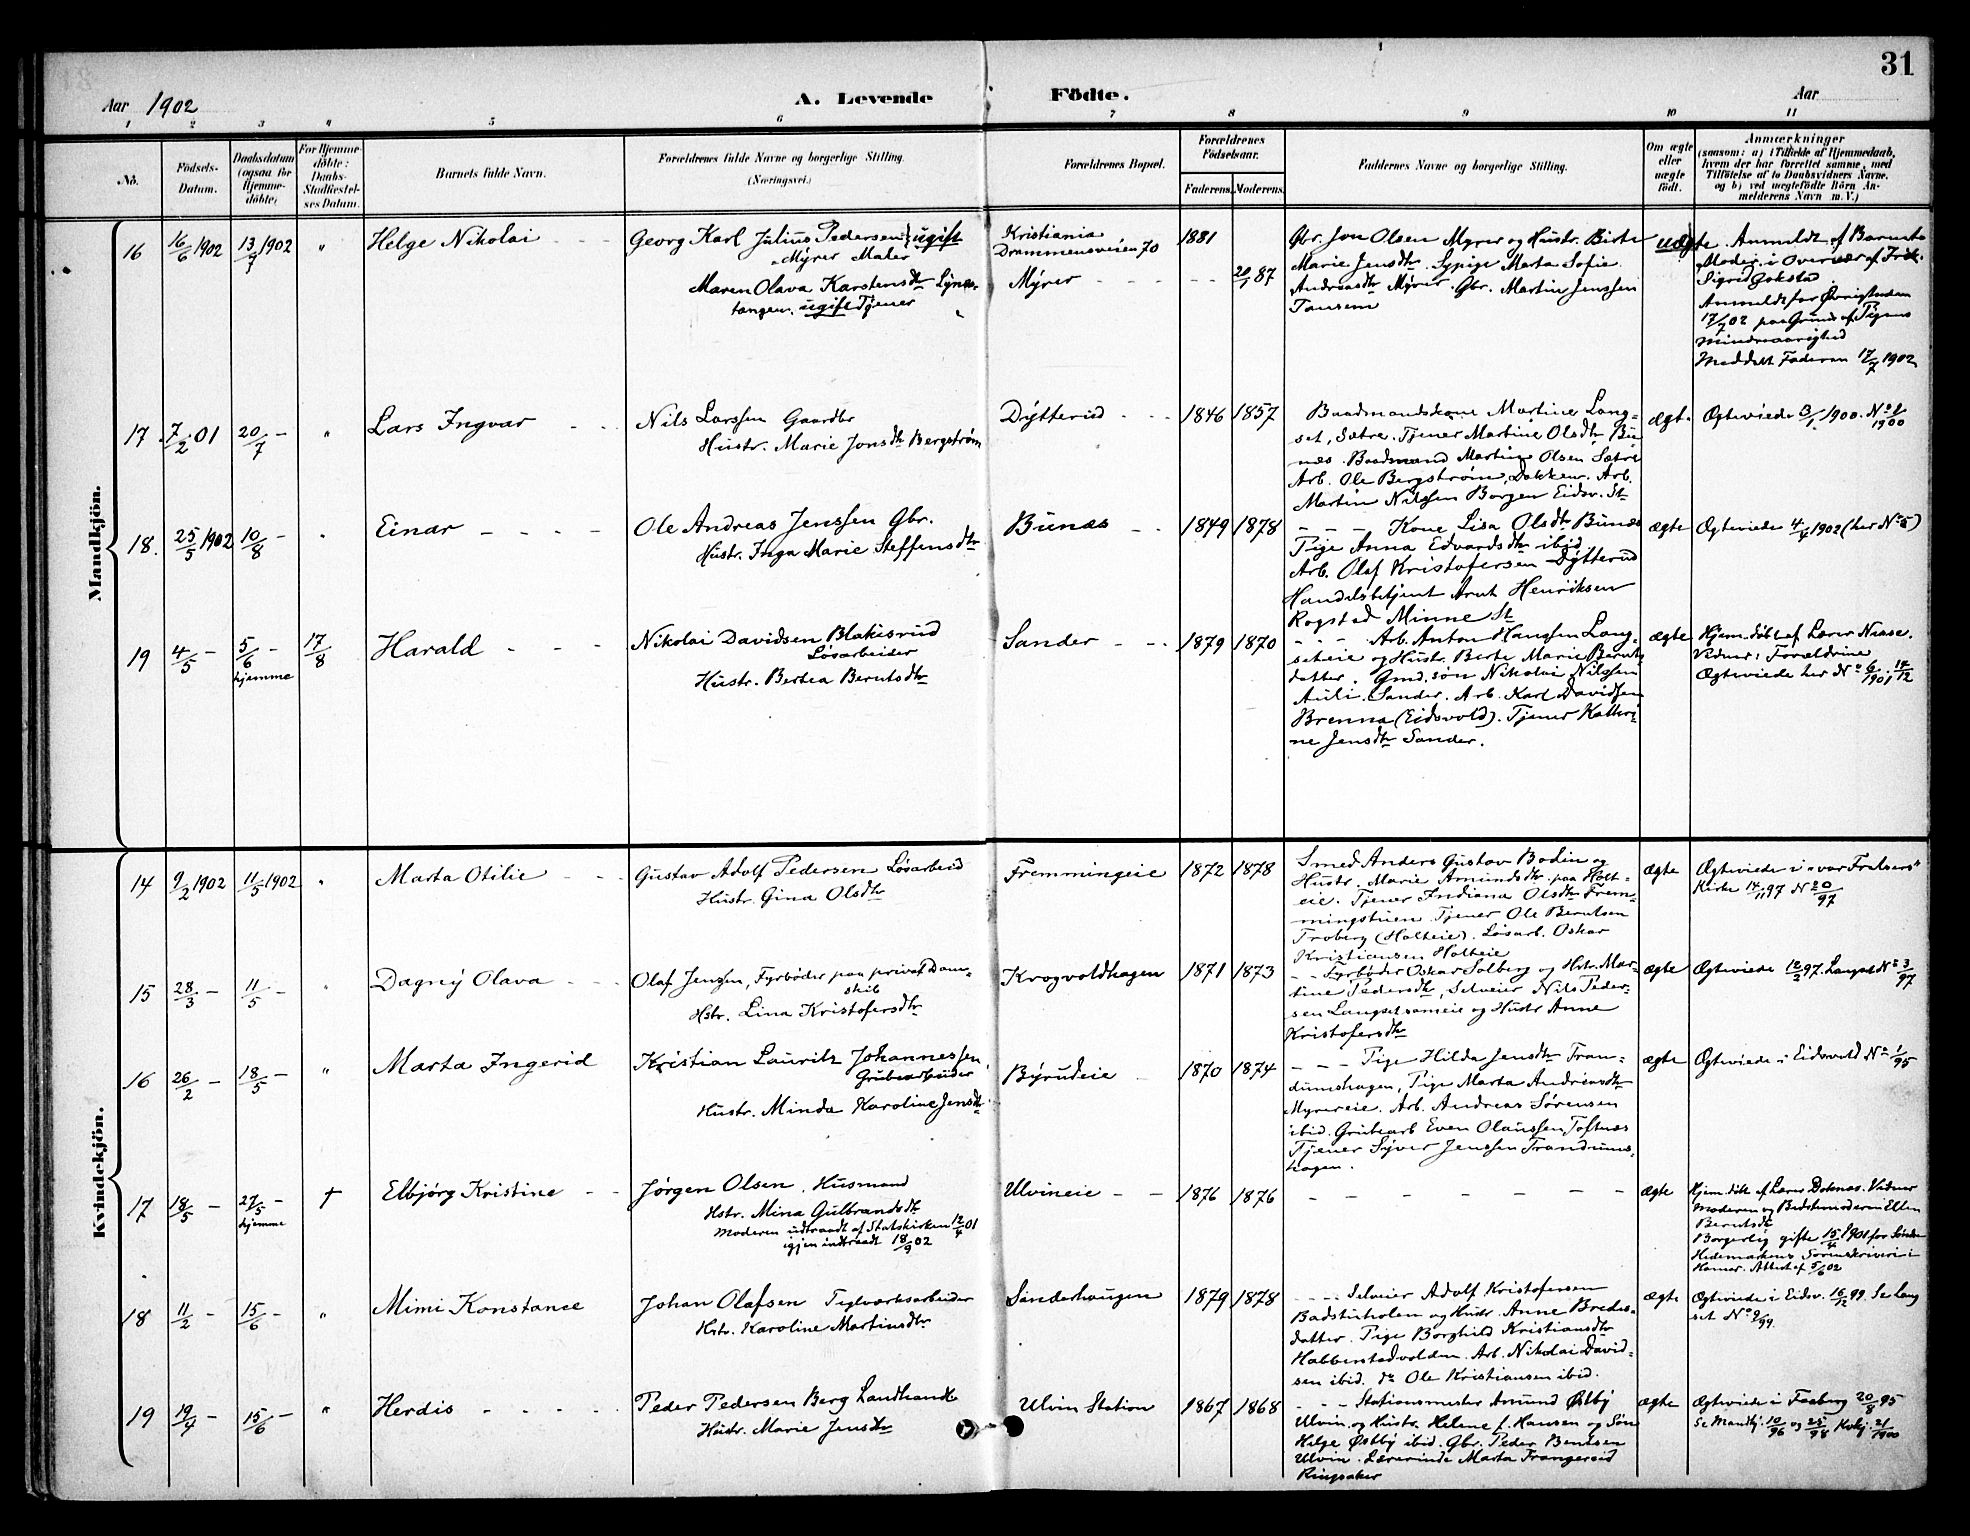 31
Aar 1902 A. Levende Födte. Aar
1 2 3 4 5 6 7 8 9 10 11
No.
Födsels-Datum.
Daabsdatum (ogsaa for Hjemmedöbte)
For Hjemmedöbte: Daabs-Stadfæstelses Datum.
Barnets fulde Navn.
Forældrenes fulde Navne og borgerlige Stilling.
(Næringsvei.)
Forældrenes Bopæl.
Forældrenes Födselsaar.
Faderens. Moderens.
Faddernes Navne og borgerlige Stilling.
Om ægte eller uægte födt.
Anmærkninger
(saasom: a) i Tilfælde af Hjemmedaab,
hvem der har forrettet samme, med
Tilföielse af to Daabsvidners Navne,
og b) ved uægtefödte Börn An-
melderens Navn m. V.)
Mandkjön.
16 16/6 1902 13/7 1902 " Helge Nikolai
Georg Karl Julius Pedersen ugift
Myrer Maler
Maren Olava Karstensdtr Lynes-
tangen, ugift Tjener
Kristiania
Drammensveien 70
Myrer
1881 20/1 87
Gbr. Jon Olsen Myrer og Hustr. Birte
Marie Jensdtr. Sypige Marta Sofie
Andreasdtr Myrer. Gbr. Martin Jenssen
Tansem
uægte. Anmeldt af Barnets
Moder i Overvær af Frk.
Sigrid Gokstad
Anmeldt for Øvrigheden
17/7 02 paa Grund af Pigens
Mindreaarighed
Meddelt Faderen 17/7 1902
17 7/2 01 20/7 - " Lars Ingvar
Nils Larssen Gaardbr
Hustr. Marie Jonsdtr Bergstrøm
Dytterud 1846 1857
Baadmandskone Martine Lang-
set, Sætre. Tjener Martine Olsdtr Bu
næs. Baadmand Martin Olsen Sætre
Arb. Ole Bergstrøm, Dokken. Arb.
Martin Nilssen Borgen Eidsv. St
ægt. Ægteviede 3/1 1900. No 1/1900
18. 25/5 1902 10/8 - " Einar
Ole Andreas Jenssen Gbr.
Hustr. Inga Marie Steffensdtr
Bunæs 1849 1878
Kone Lisa Olsdtr Bunæs
Pige Anna Edvardsdtr ibid
Arb. Olaf Kristofersen Dytterud
Handelsbetjent Arnt Henriksen
Rogstad Minne St
ægte Ægteviede 4/4 1902 (her No 5)
19 4/5 - 5/6 - hjemme 17/8 Harald
Nikolai Davidsen Blakisrud
Løsarbeider
Hustr. Bertea Berntsdtr
Sander 1879 1870
Arb. Anton Hanssen Lang-
seteie og Hustr. Berte Marie Bernts
datter. Gmd. søn Nikolai Nilssen
Auli. Sander. Arb. Karl Davidsen
Brenna (Eidsvold). Tjener Kathri-
ne Jensdtr Sander.
ægte Hjem. døbt af Lærer
Vidner: Forældrene
Ægteviede her No 6/1901. 14/12
Kvindekjön.
14 9/2 1902 11/5 1902 " Marta Otilie
Gustav Adolf Pedersen Løsarbeid
Hustr. Gina Olsdtr
Fremmingeie 1872 1878
Smed Anders Gustav Bodin og
Hustr. Marie Amundsdtr paa Holt-
eie. Tjener Indiana Olsdtr Frem-
mingstuen Tjener Ole Berntsen
Troberg (Holteie). Løsarb. Oskar
Kristiansen Holteie
ægte Ægteviede i "vor Frelsers"
Kirke 14/11 97 No 20/97
15 28/3 - 11/5 - " Dagny Olava
Olaf Jenssen, Fyrbøder paa privat Dam-
skib
Hstr. Lina Kristofersdtr
Krogvoldhagen 1871 1873
Fyrbøder Oskar Solberg og Hstr. Mar-
tine Pedersdtr, Selveier Nils Peder-
sen Langset sameie og Hustr Anne
Kristofersdtr
ægte Ægteviede 12/2 97. Langset No 3/97
16 26/2 - 18/5 - " Marta Ingerid
Kristian Lauritz Johannessen
Grubearbeider
Hustr. Minda Karoline Jensdtr
Byrudeie 1870 1874
Pige Hilda Jensdtr Tran-
dumshagen, Pige Marta Andreasdtr
Myrereie. Arb. Andreas Sørensen
ibid. Grubearb Even Olaussen Toftnæs
Tjener Syver Jenssen Trandums-
hagen.
ægte Ægteviede i Eidsvold No 1/95
17 18/5 - 27/5 - hjemme † Elbjørg Kristine
Jørgen Olsen. Husmand
Hstr. Mina Gulbrandsdtr
Moderen udtraadt af Statskirken 12/4 01
igjen indtraadt 18/9 02
Ulvineie 1876 1876
ægte Hjem. døbt af Lærer Doknæs. Vidner
Moderen og Bedstemoderen Ellen
Berntsdtr
Borgerlig gifte 15/4 1901 for Søndre
Hedemarkens Sorenskriveri i
Hamar. Attest af 5/6 02
18 11/2 - 15/6 - " Mimi Konstance
Johan Olafsen Teglværksarbeider
Hstr. Karoline Martinsdtr
Sanderhaugen 1879 1878
Selveier Adolf Kristofersen
Badstuholen og Hustr. Anne Bredes-
datter. Pige Borghild Kristiansdtr
Habberstadvolden. Arb. Nikolai David-
sen ibid. do Ole Kristiansen ibid.
ægte Ægteviede i Eidsv. 16/12 99. Se Lang
set No 9/99.
19 19/4 - 15/6 - " Herdis
Peder Pedersen Berg Landhandl.
Hustr. Marie Jensdtr
Ulvin Station 1867 1868
Stationsmester Amund Østby
Ulvin og Hustr. Helene f. Hansen og Søn
Helge Østby ibid. Gbr. Peder Bentsen
Ulvin. Lærerinde Marta Frangereid
Ringsaker
ægte Ægteviede i Faaberg 20/8 95
Se Mandkj. 10/96 og 25/98 Kvkj. 21/1900